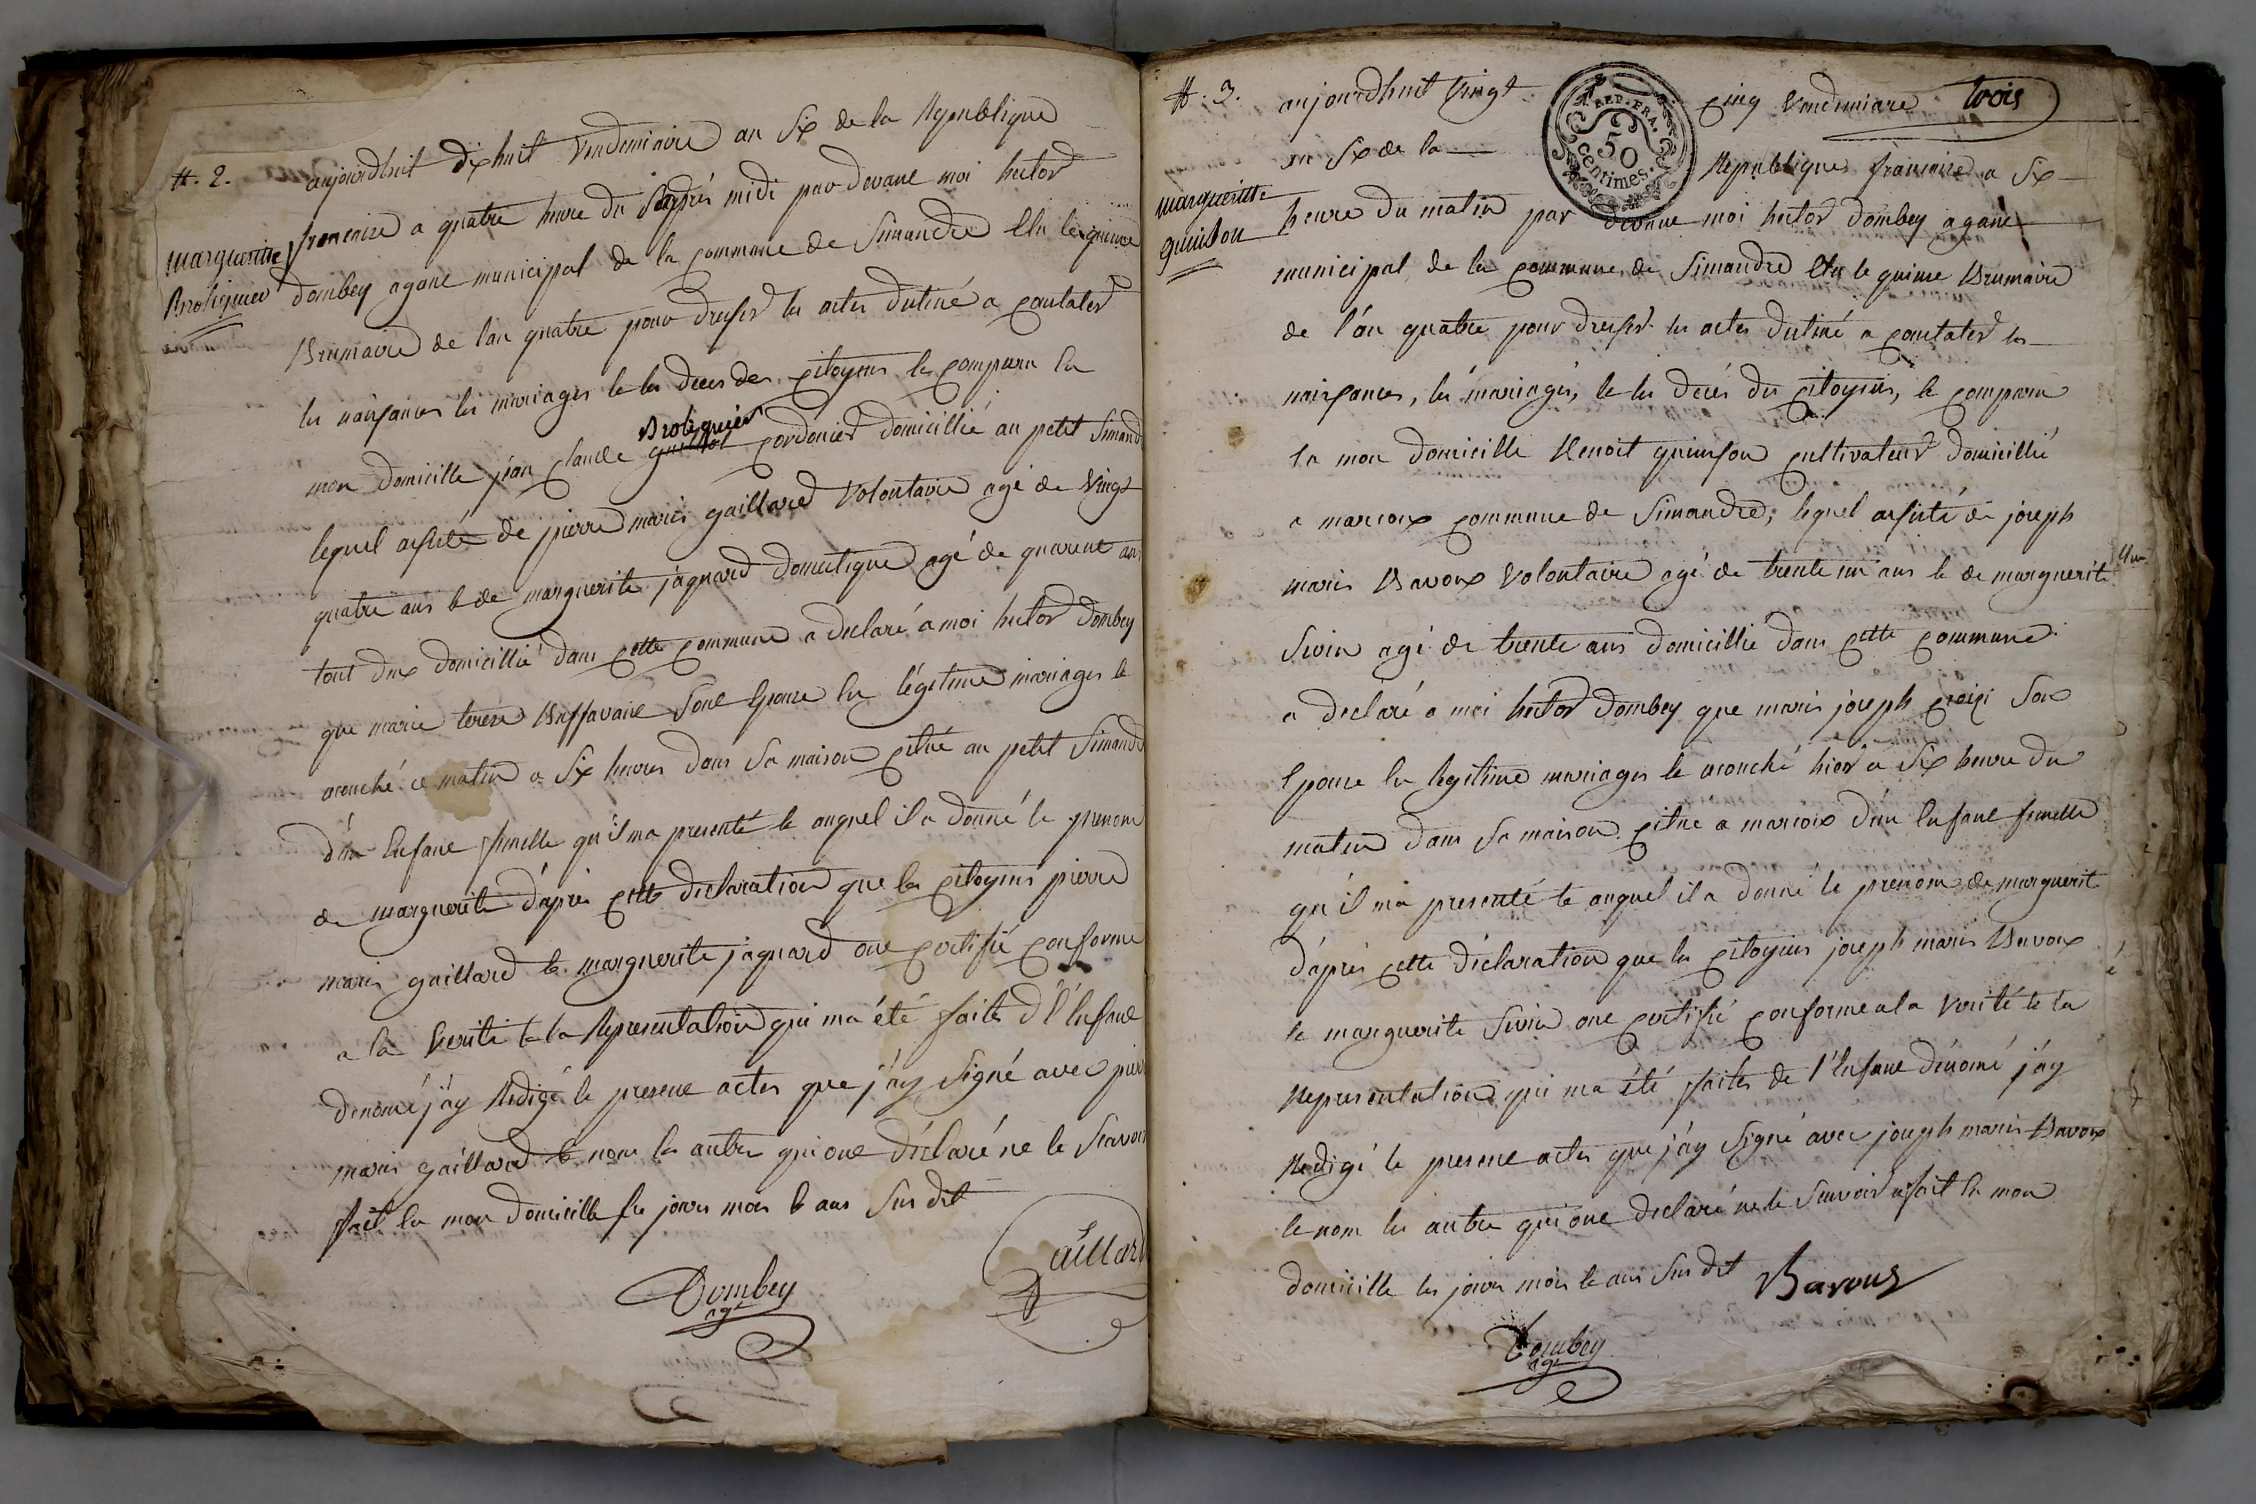 #. 2.
aujourdhuit dixhuit Vendemiaire an Six de la Republique
margueritte
Brotiquier
francaise a quatre heure du Soir après midi par devant moi hector
dombey agant municipal de la commune de Simandre Elu le quinze
Brumaire de l'an quatre pour dresser les actes dutiné a contater
les naissances les mariages et les deces des citoyens les comparu En
mon domicille jean claude Brotiquier cordonier domicillié au petit Simand
lequel assisté de pierre marie gaillard Volontaire agé de Vingt
quatre ans et de marguerite jaquard domestique agé de quarent an
tout deux domicillié dans cette commune a declaré a moi hector dombey
que marie terese Buffavant Sont Epouse En légitime mariages et
acouché ce matin a Six heures dans Sa maison citué au petit Simand
d'un Enfant femelle qu'il ma presenté et auquel il a donné le prenom
de marguerite d'après cette declaration que les citoyens pierre
marie gaillard et marguerite jaquard ont certifié conforme
a la Verité et la Representation qui ma été faites d l'Enfant
denomé j'ay Redigé le present actes que j'ay Signé avec pierr
marie gaillard et nom les autres qui ont déclaré ne le Scavoir
fait En mon domicille les jours mois et ans Sus dit
Gaillard
Dombey
agt
#. 3.
aujourdhuit Vingt cinq Vendemiaire trois
REP. FRA.
50
centimes.
an Six de la Republique francaise a Six
margueritte
guinson
heure du matin par devant moi hector dombey agant
municipal de la commune de Simandre Elu le quinse Brumaire
de l'an quatre pour dresser les actes dutiné a contater les
naissances, les mariages, et les decés des citoyens, et comparu
En mon domicille Benoit guinson cultivateur domicillié
a marcoux commune de Simandre, lequel assisté de joseph
marie Bavoux Volontaire agé de trente un ans et de marguerite
Sivin agé de trente ans domicillié dans cette commune
a declaré a moi hector dombey que marie joseph croizi Son
Epouse En legitime mariages et acouché hier a Six heure du
matin dans Sa maison citué a marcoux d'un Enfant femelle
qu'il ma presenté et auquel il a donné le prenom de marguerit
d'après cette déclaration que les citoyens joseph marie Bavoux
et marguerite Sivin ont certifié conforme a la Verité et la
Representation qui ma été faites de l'Enfant dénomé j'ay
Redigé le present actes que j'ay Signé avec joseph marie Bavoux
et nom les autre qui ont declaré ne le Scavoir fait En mon
domicille les jours mois et ans Sus dit
Bavoux
Dombey
agt